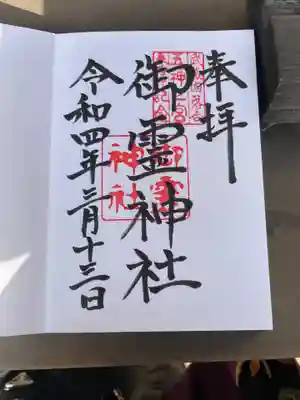 奉拝
御霊神社
令和四年三月十三日
御霊
神社